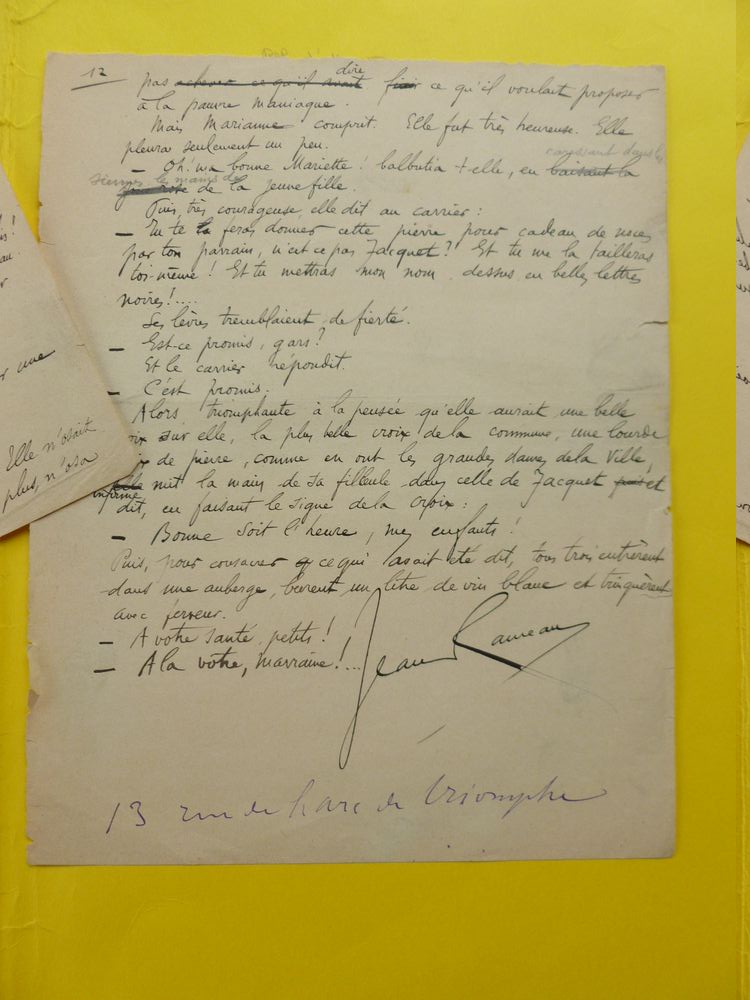 12
dire
pas achever ce qu'il avait finir ce qu'il voulait proposer
à la pauvre maniaque.
Mais Marianne comprit. Elle fut très heureuse. Elle
pleura seulement un peu.
caressant dans les
— Oh! ma bonne Mariette! balbutia-t-elle, en baisant la
siennes les mains de
de la jeune fille.
Puis, très courageuse, elle dit au carrier :
— Tu te la feras donner cette pierre pour cadeau de noces
par ton parrain, n'est ce pas Jacquet? Et tu me la tailleras
toi-même! Et tu mettras mon nom dessus en belles lettres
noires!....
Ses lèvres tremblaient de fierté.
— Est-ce promis, gars?
Et le carrier répondit.
— C'est promis.
Alors triomphante à la pensée qu'elle aurait une belle
oix sur elle, la plus belle croix de la commune, une lourde
ix de pierre, comme en ont les grandes dames de la ville,
elle mit la main de sa filleule dans celle de Jacquet puis et
infirme
dit, en faisant le signe de la croix :
— Bonne soit l'heure, mes enfants!
Puis, pour consacrer ce qui avait été dit, tous trois entrèrent
dans une auberge, burent un litre de vin blanc et trinquèrent
avec ferveur.
— A votre santé, petits!
— A la votre, marraine!...
Jean Rameau
13 rue de l'arc de Triomphe
r une
Elle n'osait
plus, n'osa